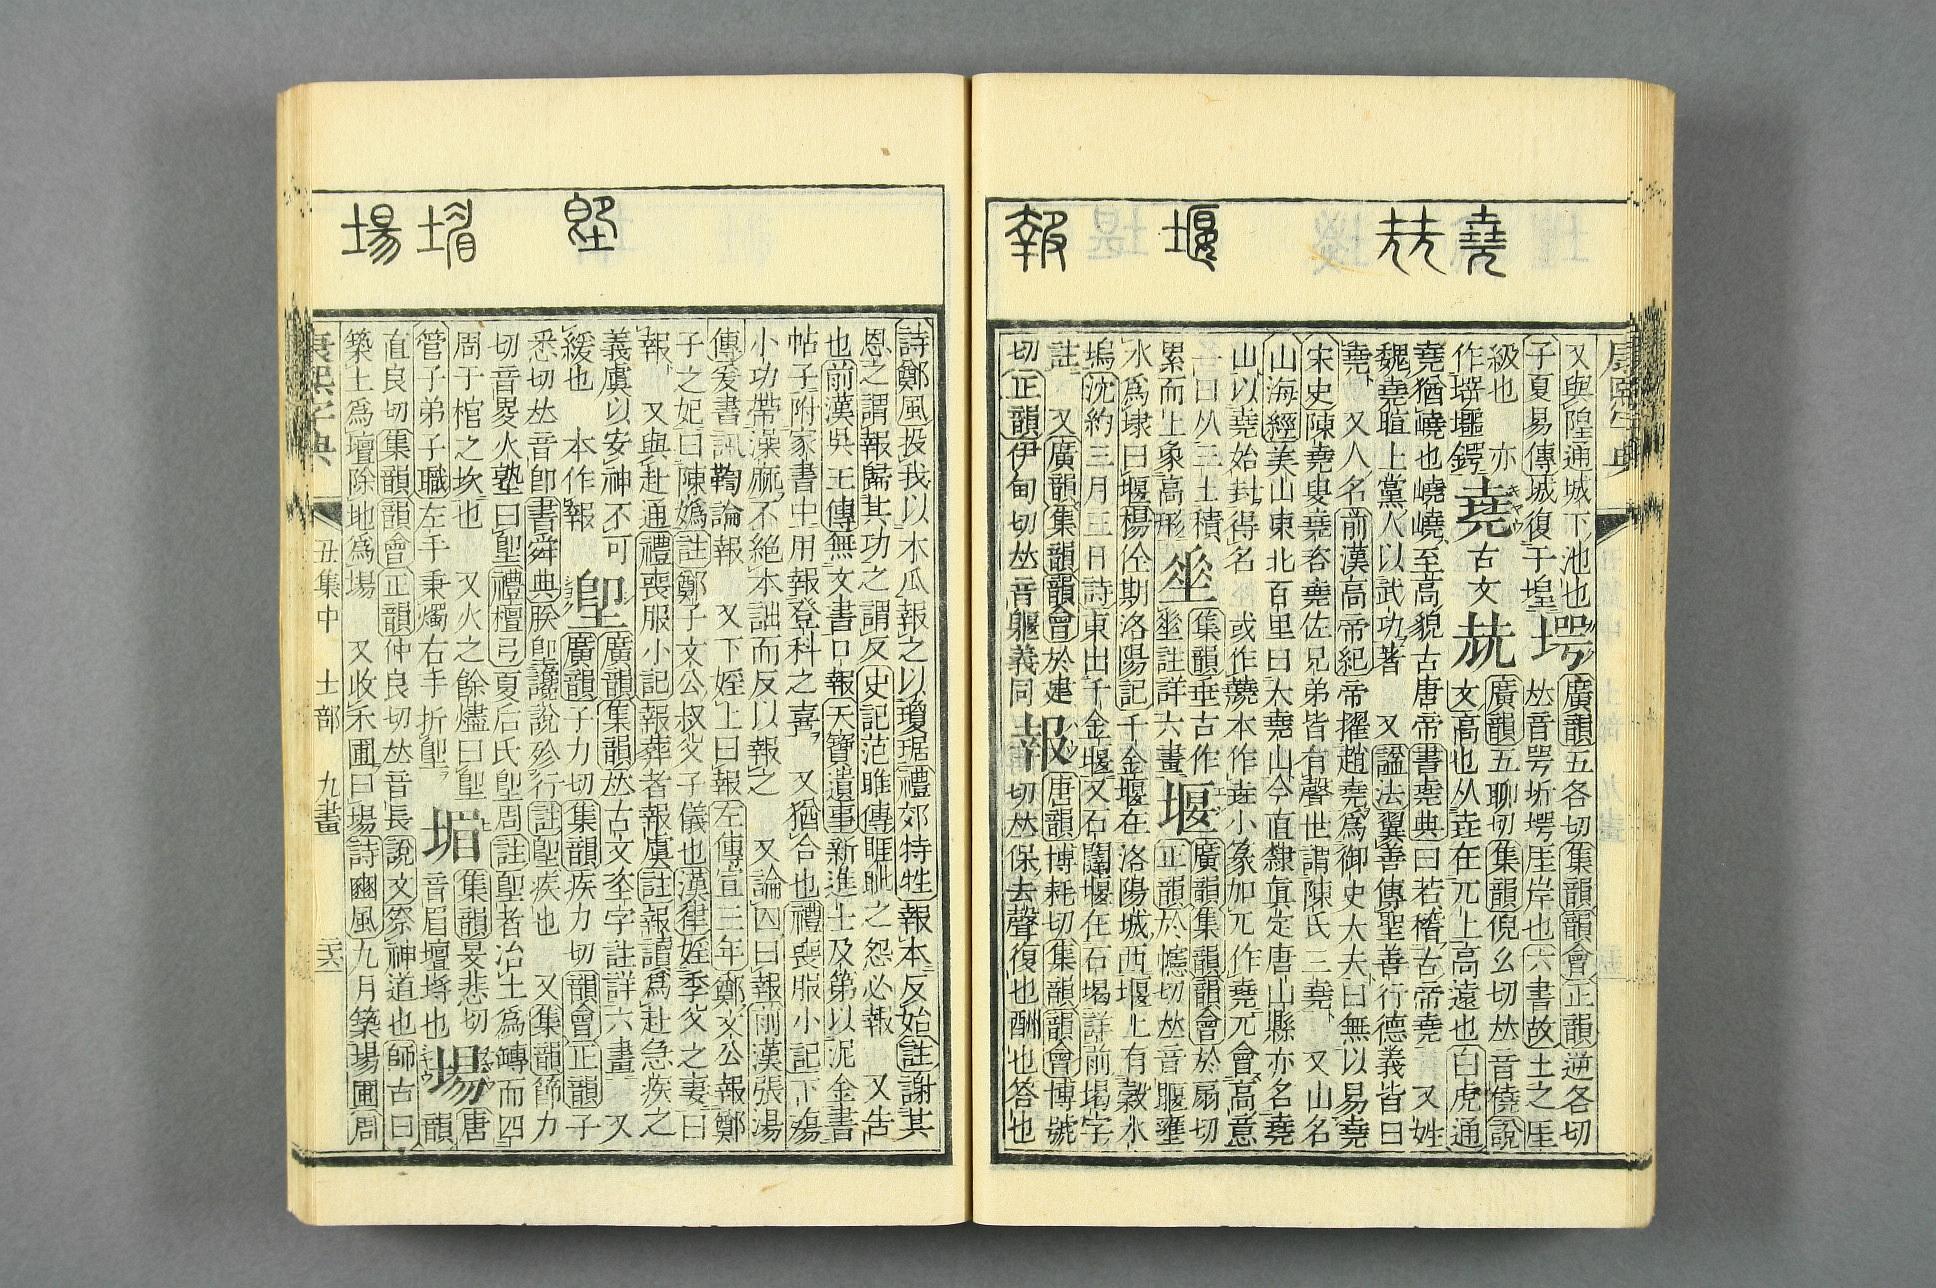 堯 𡋰 堰 報
又與隍通城下池也
子夏易傳城復于堭 堮 廣韻五各切集韻韻會正韻逆各切
𠀤音咢圻堮厓岸也六書故土之厓
級也 亦
作㟧壥鍔 堯 古文 𡋰 廣韻五聊切集韻倪幺切𠀤音僥說
文高也从垚在兀上高遠也白虎通
堯猶嶢也嶢嶢至高貌古唐帝書堯典曰若稽古帝堯 又姓
魏堯暄上黨人以武功著 又諡法翼善傳聖善行德義皆曰
堯 又人名前漢高帝紀帝擢趙堯爲御史大夫曰無以易堯
宋史陳堯叟堯咨堯佐兄弟皆有聲世謂陳氏三堯 又山名
山海經美山東北百里曰大堯山今直隸眞定唐山縣亦名堯
山以堯始封得名 或作䕭本作垚小篆加兀作堯元會高意
曰从三土積
累而上象高形 埀 集韻垂古作
埀註詳六畫 堰 廣韻集韻韻會於扇切
正韻於幰切𠀤音躽壅
水爲埭曰堰楊佺期洛陽記千金堰在洛陽城西堰上有穀水
塢沈約三月三日詩東出千金堰又石闥堰在石堨詳前堨字
註 又廣韻集韻韻會於建
切正韻伊甸切𠀤音躽義同 報 唐韻博耗切集韻韻會博號
切𠀤保去聲復也酬也答也
塱 堳 場
詩鄭風投我以木瓜報之以瓊琚禮郊特牲報本反始註謝其
恩之謂報歸其功之謂反史記范睢傳睚眦之怨必報 又告
也前漢吳王傳無文書口報天寶遺事新進士及第以泥金書
帖子附家書中用報登科之喜 又猶合也禮喪服小記下殤
小功帶澡麻不絕本詘而反以報之 又論囚曰報前漢張湯
傳爰書訊鞫論報 又下婬上曰報左傳宣三年鄭文公報鄭
子之妃曰陳嬀註鄭子文公叔父子儀也漢律婬季父之妻曰
報 又與赴通禮喪服小記報葬者報虞註報讀爲赴急疾之
義虞以安神不可
緩也 本作𡙈 堲 廣韻集韻𠀤古文坙字註詳六畫 又
廣韻子力切集韻疾力切韻會正韻子
悉切𠀤音卽書舜典朕堲讒說殄行註堲疾也 又集韻節力
切音㮨火熟曰堲禮檀弓夏后氏堲周註堲者冶土爲甎而四
周于棺之坎也 又火之餘燼曰堲
管子弟子職左手秉燭右手折堲 堳 集韻旻悲切
音眉壇埒也 場 唐
韻
直良切集韻韻會正韻仲良切𠀤音長說文祭神道也師古曰
築土爲壇除地爲場 又收禾圃曰場詩豳風九月築場圃周
康熙字典 丑集中 土部 九畫 六